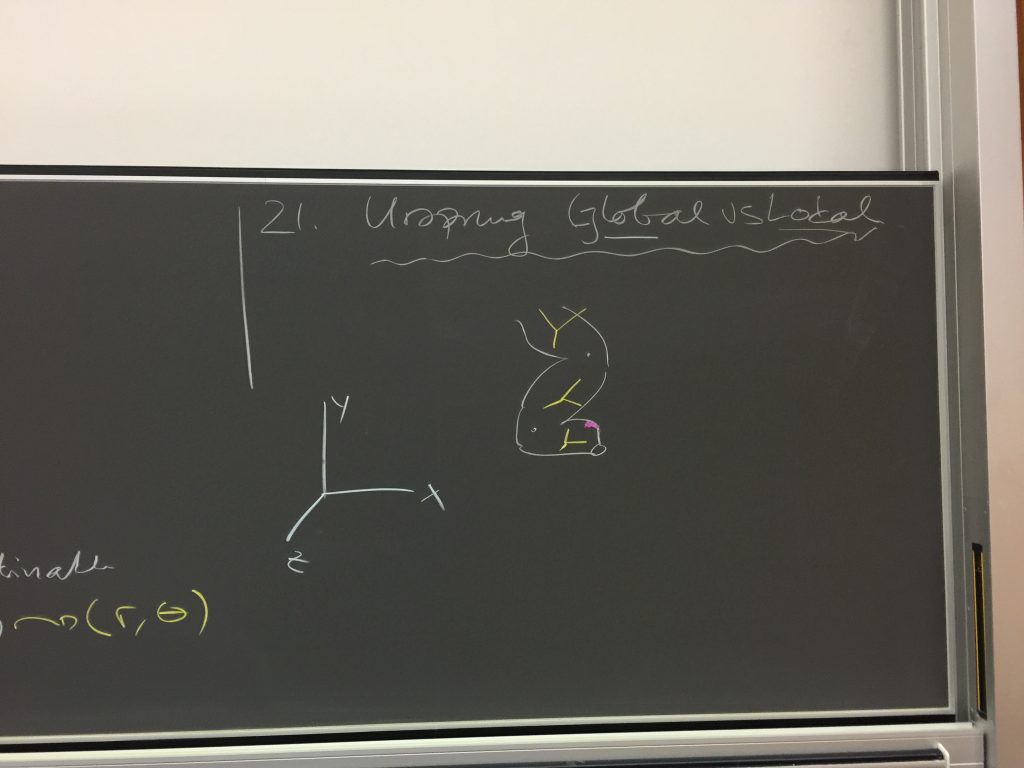 21. Ursprung Global vs Lokal
y
x
z
(r, θ)